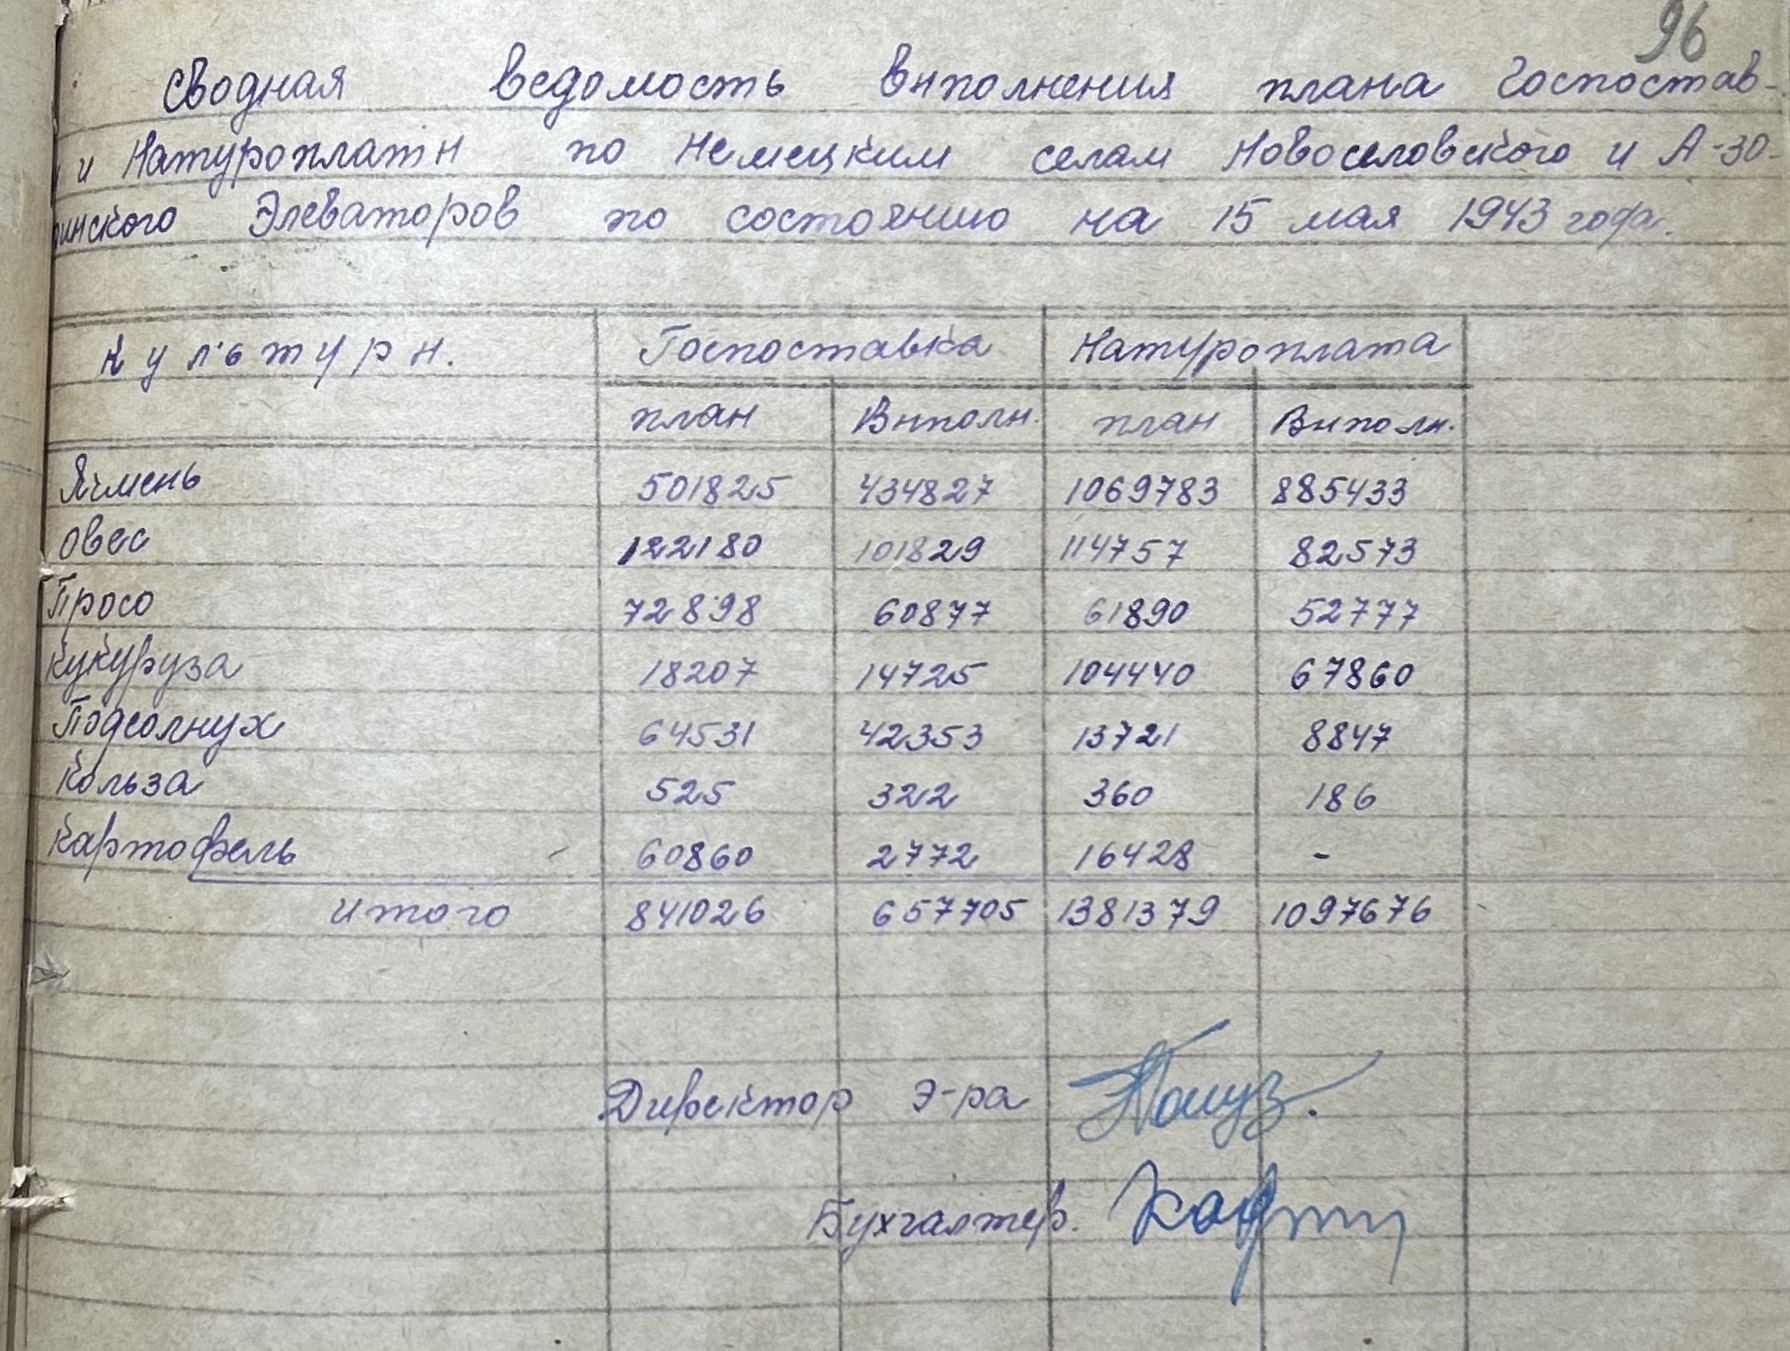 96
Сводная ведомость выполнения плана Госпостав-
и Натуроплаты по Немецким селам Новоселовского и А-зо-
инского Элеваторов по состоянию на 15 мая 1943 года.
Культуры. Госпоставка Натуроплата
план Выполн. план Выполн.
Ячмень 501825 434827 1069783 885433
Овес 122180 101829 114757 82573
Просо 72898 60877 61890 52777
Кукуруза 18207 14725 104440 67860
Подсолнух 64531 42353 13721 8847
Кольза 525 322 360 186
Картофель 60860 2772 16428 -
Итого 841026 657705 1381379 1097676
Директор Э-ра
Бухгалтер.